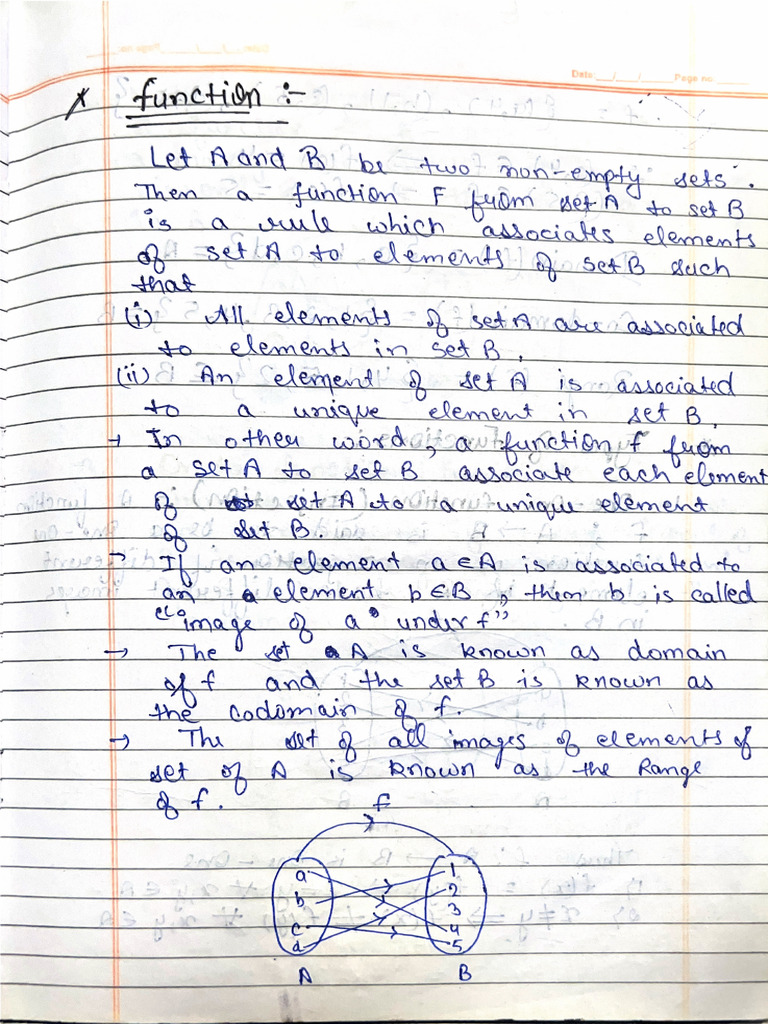 Date: __/__/____ Page no.
* function :-
Let A and B be two non-empty sets.
Then a function F from set A to set B
is a rule which associates elements
of set A to elements of set B such
that
(i) All elements of set A are associated
to elements in set B.
(ii) An element of set A is associated
to a unique element in set B.
→ In other word, a function f from
a set A to set B associate each element
of set A to a unique element
of set B.
→ If an element a∈A is associated to
an element b∈B, then b is called
"image of a under f"
→ The set A is known as domain
of f and the set B is known as
the codomain of f.
→ The set of all images of elements of
set of A is known as the Range
of f.
f
a 1
b 2
3
c 4
d 5
A B